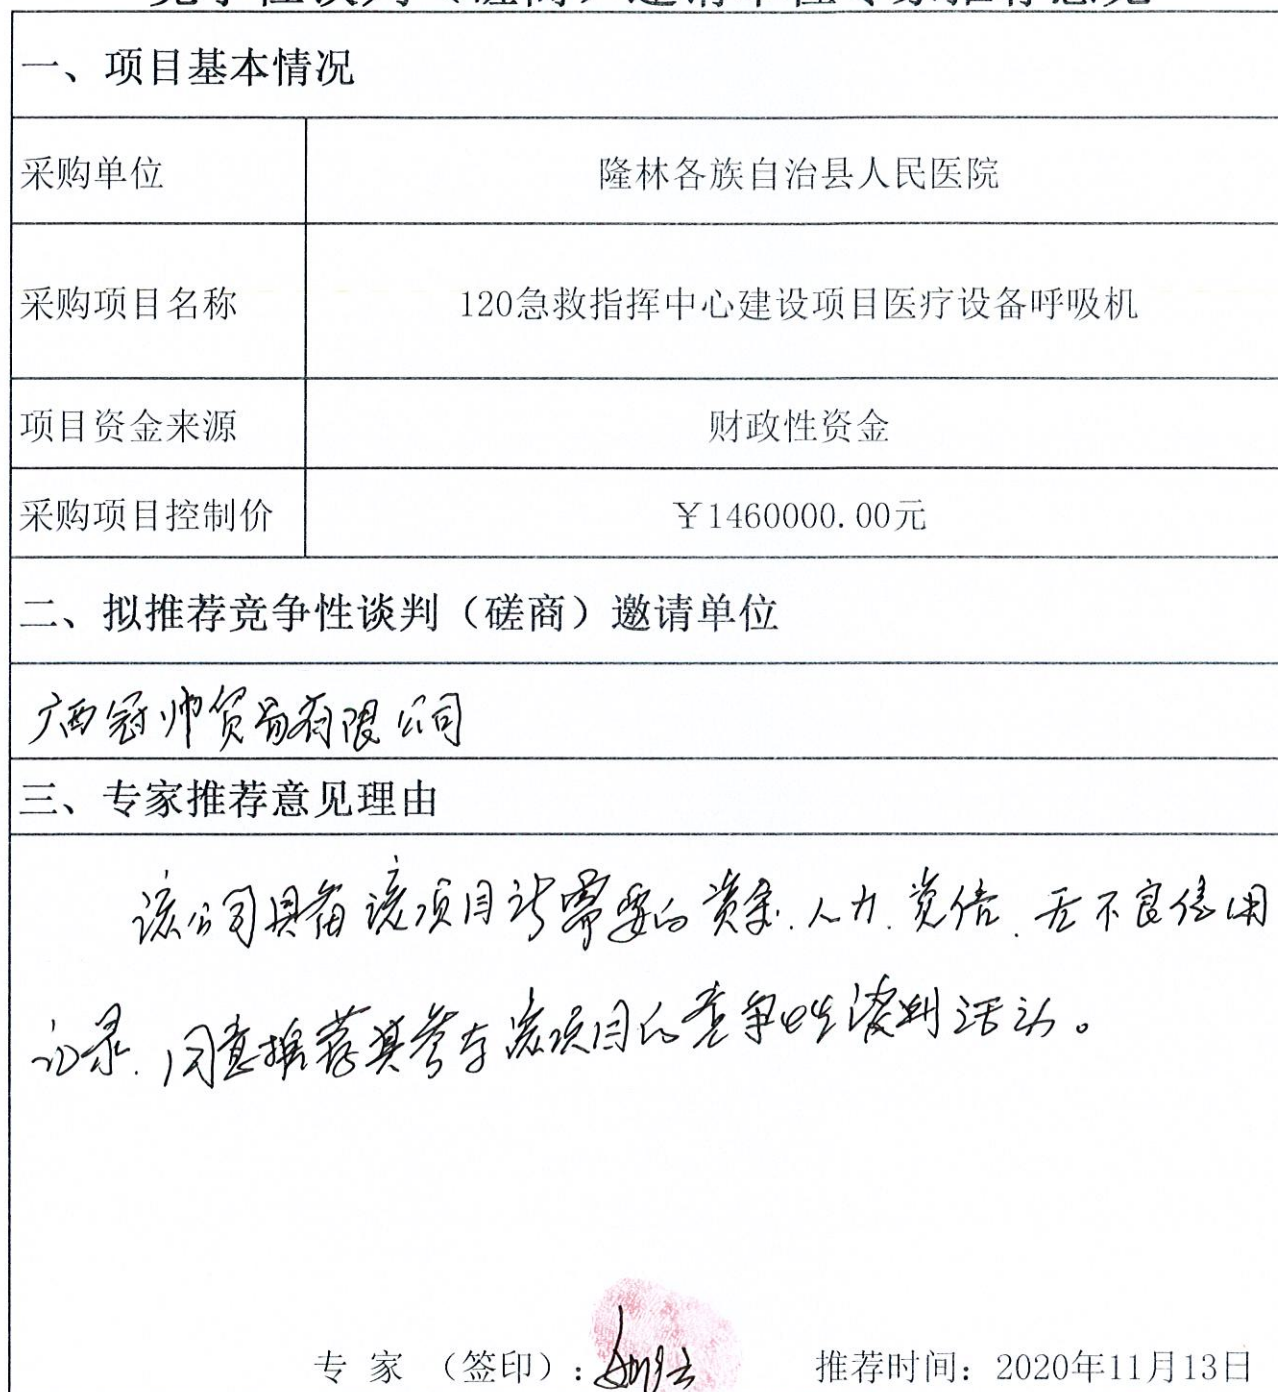 竞争性谈判（磋商）邀请单位专家推荐意见
一、项目基本情况
采购单位 隆林各族自治县人民医院
采购项目名称 120急救指挥中心建设项目医疗设备呼吸机
项目资金来源 财政性资金
采购项目控制价 ￥1460000.00元
二、拟推荐竞争性谈判（磋商）邀请单位
广西冠帅贸易有限公司
三、专家推荐意见理由
该公司具备该项目所需要的资金.人力.资信.无不良信用
记录.同意推荐其参与该项目的竞争性谈判活动。
专 家 （签印）： 推荐时间：2020年11月13日